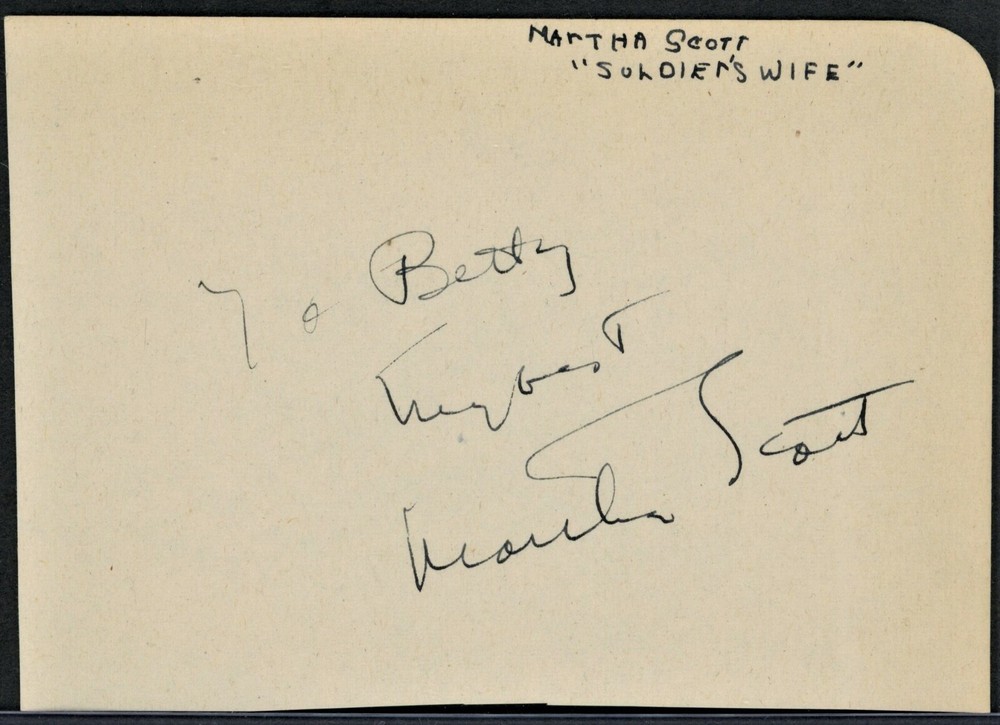 MARTHA SCOTT
"SOLDIER'S WIFE"
To Betty
My best
Martha Scott